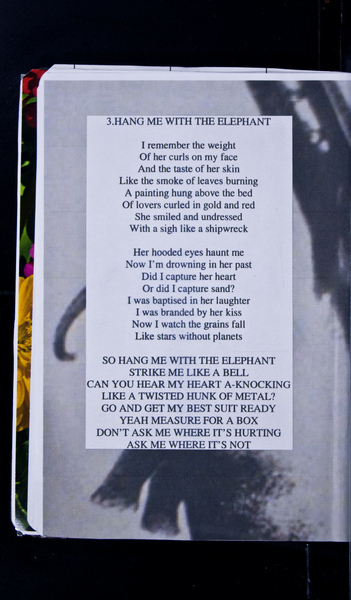 3.HANG ME WITH THE ELEPHANT
I remember the weight
Of her curls on my face
And the taste of her skin
Like the smoke of leaves burning
A painting hung above the bed
Of lovers curled in gold and red
She smiled and undressed
With a sigh like a shipwreck
Her hooded eyes haunt me
Now I'm drowning in her past
Did I capture her heart
Or did I capture sand?
I was baptised in her laughter
I was branded by her kiss
Now I watch the grains fall
Like stars without planets
SO HANG ME WITH THE ELEPHANT
STRIKE ME LIKE A BELL
CAN YOU HEAR MY HEART A-KNOCKING
LIKE A TWISTED HUNK OF METAL?
GO AND GET MY BEST SUIT READY
YEAH MEASURE FOR A BOX
DON'T ASK ME WHERE IT'S HURTING
ASK ME WHERE IT'S NOT